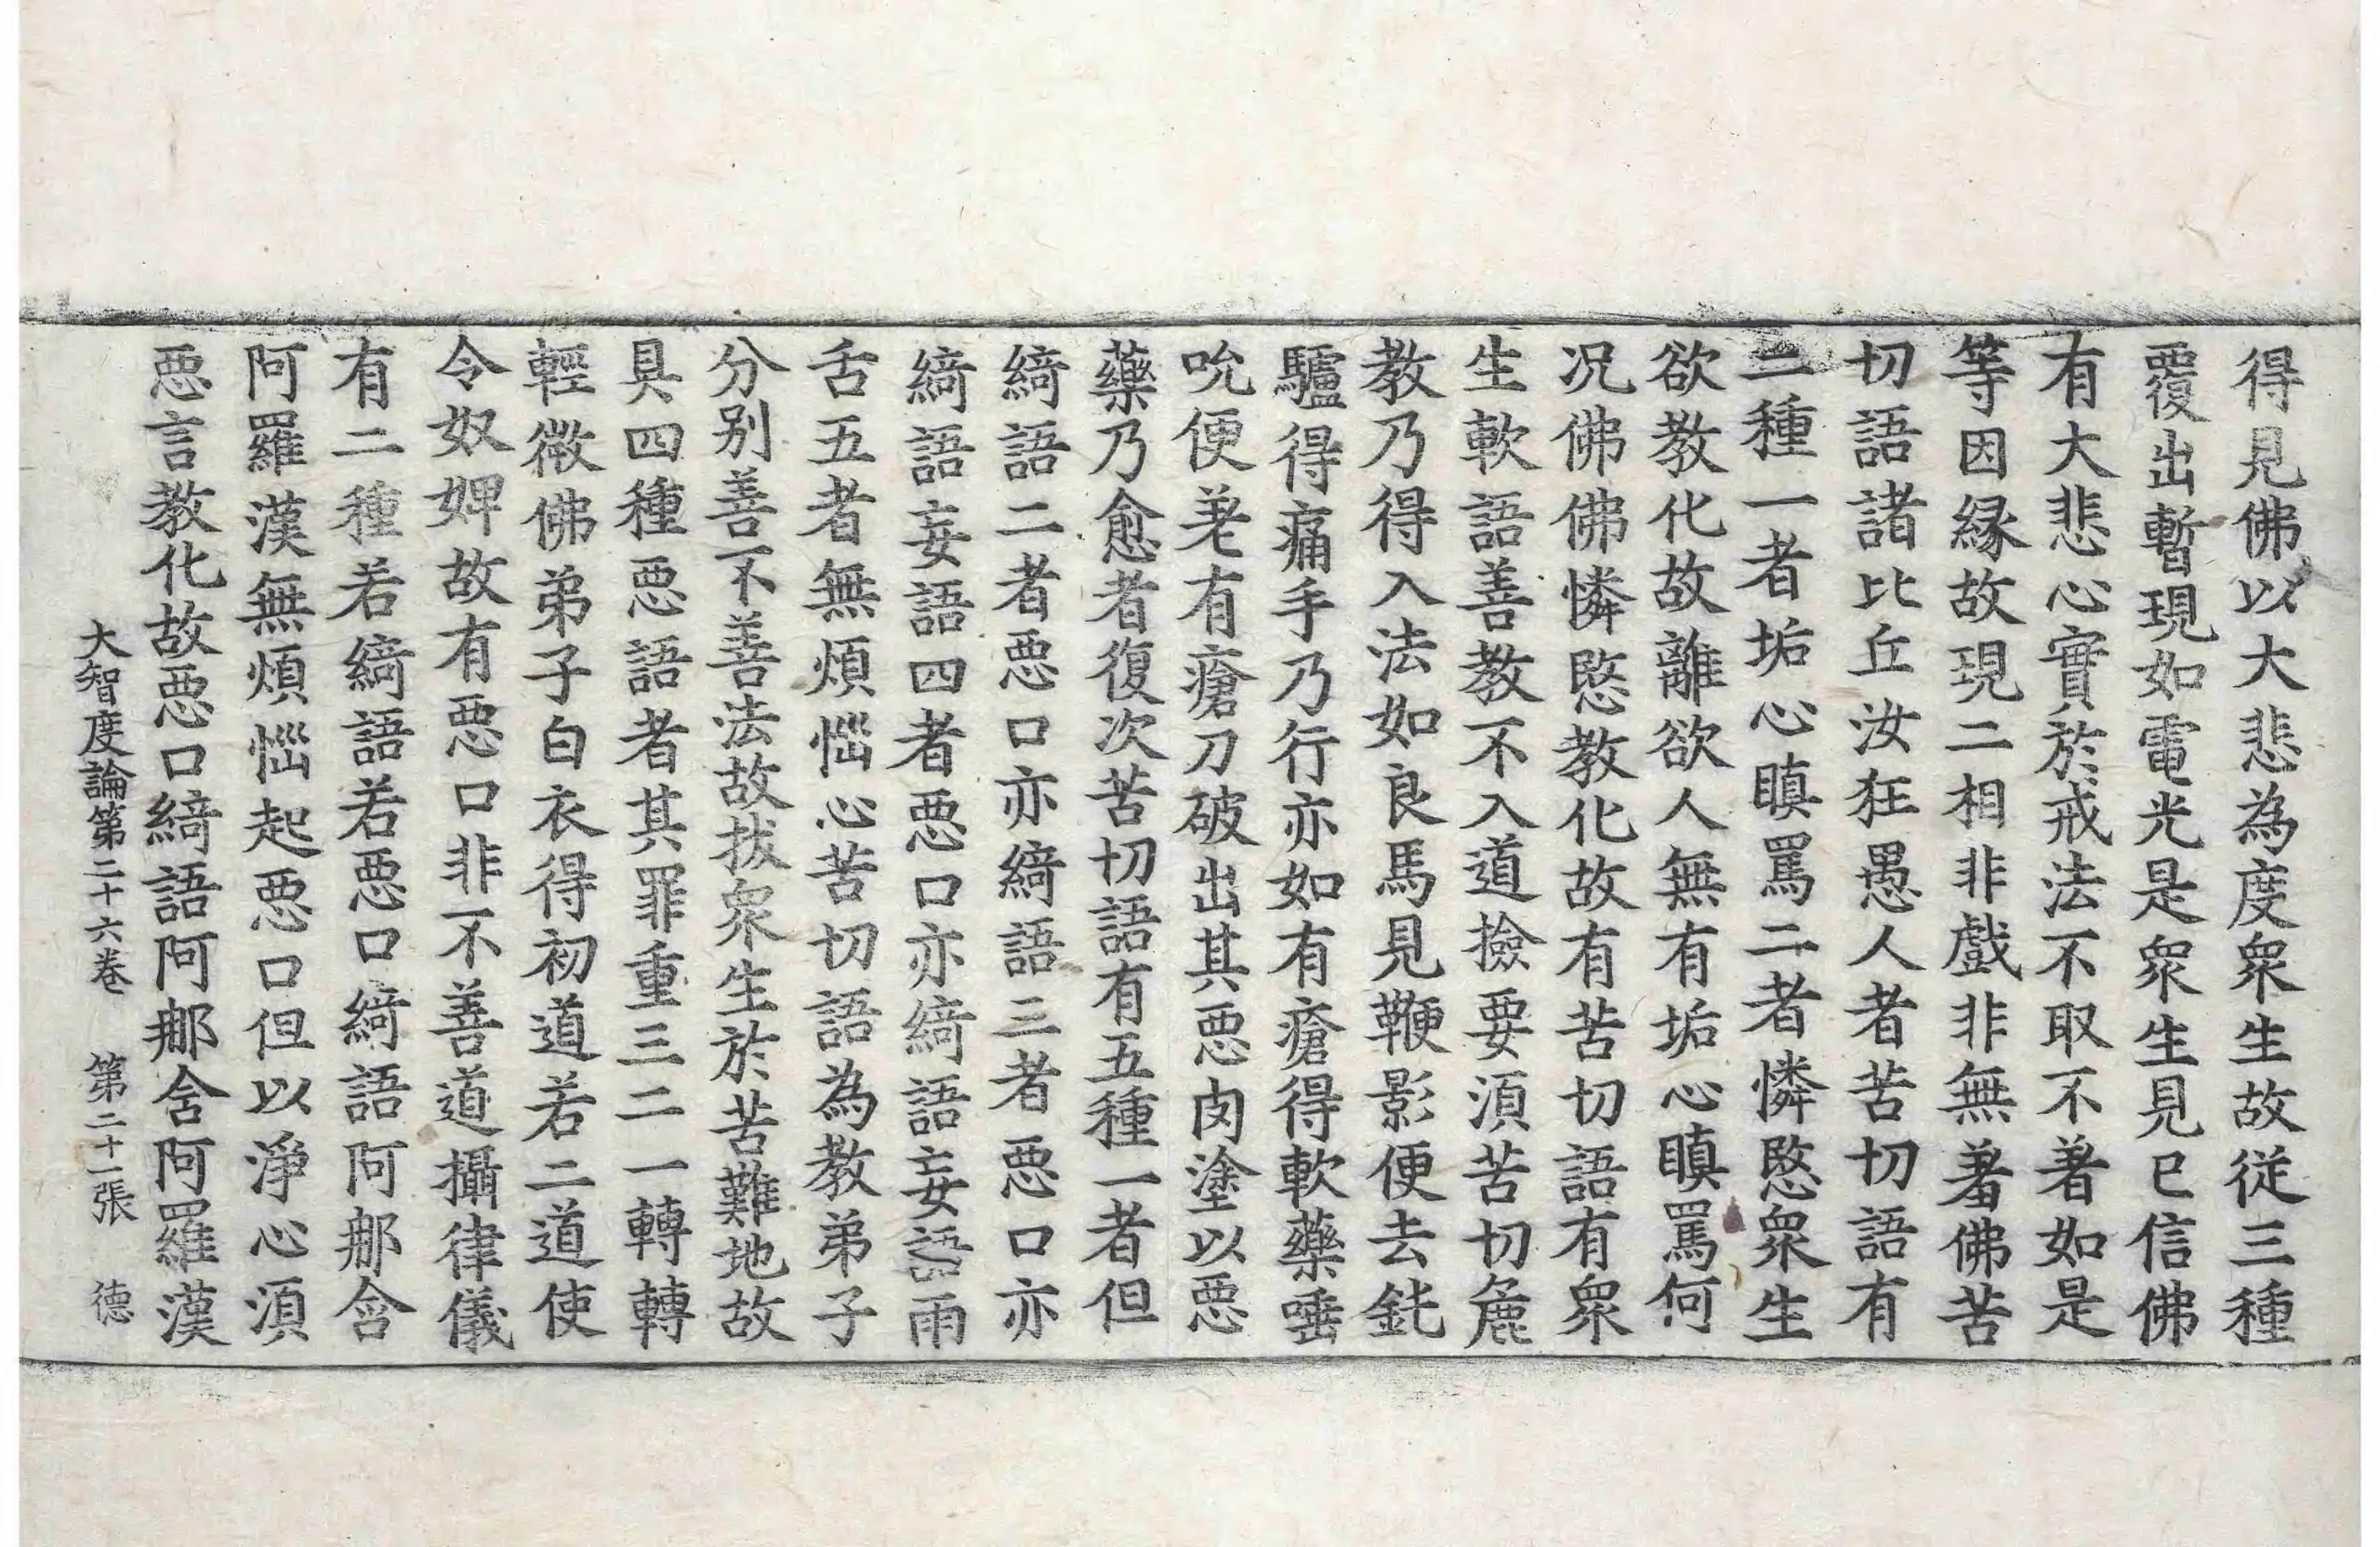 得見佛以大悲為度衆生故從三種
覆出暫現如電光是衆生見已信佛
有大悲心實於戒法不取不著如是
等因緣故現二相非戲非無羞佛苦
切語諸比丘汝狂愚人者苦切語有
二種一者垢心瞋罵二者憐愍衆生
欲教化故離欲人無有垢心瞋罵何
况佛佛憐愍教化故有苦切語有衆
生軟語善教不入道撿要須苦切麁
教乃得入法如良馬見鞭影便去鈍
驢得痛手乃行亦如有瘡得軟藥唾
呪便差有瘡刀破出其惡肉塗以惡
藥乃愈者復次苦切語有五種一者但
綺語二者惡口亦綺語三者惡口亦
綺語妄語四者惡口亦綺語妄語兩
舌五者無煩惱心苦切語為教弟子
分別善不善法故拔衆生於苦難地故
具四種惡語者其罪重三二一轉轉
輕微佛弟子白衣得初道若二道使
令奴婢故有惡口非不善道攝律儀
有二種若綺語若惡口綺語阿那含
阿羅漢無煩惱起惡口但以淨心須
惡言教化故惡口綺語阿那含阿羅漢
大智度論第二十六卷 第二十一張 德